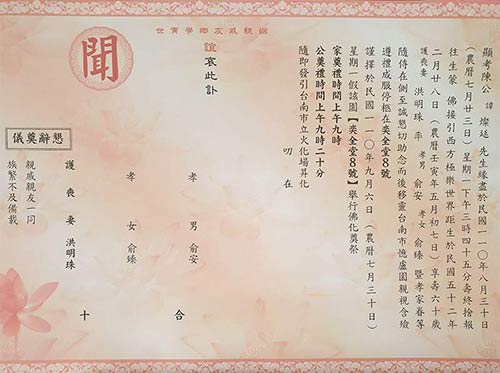 顯考陳公 諱 燦廷 先生緣盡於民國一一〇年八月三十日
(農曆七月廿三日)星期一下午三時四十五分壽終捨報
往生蒙 佛接引西方極樂世界距生於民國五十二年
二月廿八日(農曆壬寅年五月初七日)享壽六十歲
護喪妻 洪明珠 率 孝男 俞安 孝女 俞臻 暨孝家眷等
隨侍在側至誠懇切助念而後移靈台南市憶廬園親視含殮
遵禮成服停柩在奕全堂8號
謹擇於民國一一〇年九月六日(農曆七月三十日)
星期一假該園【奕全堂8號】舉行佛化奠祭
家奠禮時間上午九時
公奠禮時間上午九時二十分
隨即發引台南市立火化場昇化
叨在
姻親戚友鄉學寅世
誼哀此訃
聞
孝男 俞安 合
孝女 俞臻
護喪妻 洪明珠 十
親戚親友一同
族繁不及備載
懇辭奠儀